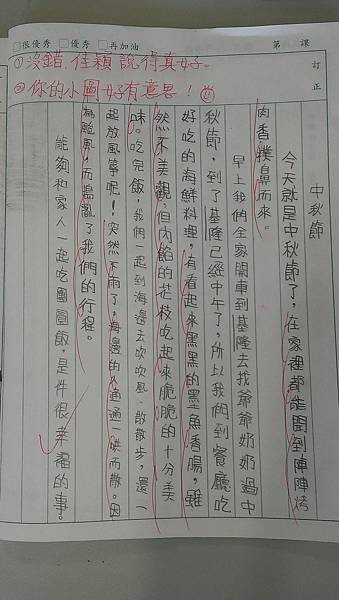 □很優秀 □優秀 □再加油
第 課
訂正
①沒錯,佳穎說得真好。
②你的小圖好有意思!
中秋節
今天就是中秋節了,在家裡都能聞到陣陣烤
肉香撲鼻而來。
早上我們全家開車到基隆去找爺爺奶奶過中
秋節,到了基隆已經中午了,所以我們到餐廳吃
好吃的海鮮料理,有看起來黑黑的墨魚香腸,雖
然不美觀,但內餡的花枝吃起來脆脆的十分美
味。吃完飯,我們一起到海邊去吹吹風、散散步,還一
起放風箏呢!突然下雨了,海邊的人通通一哄而散。因
為颱風,而搗亂了我們的行程。
能夠和家人一起吃團圓飯,是件很幸福的事。